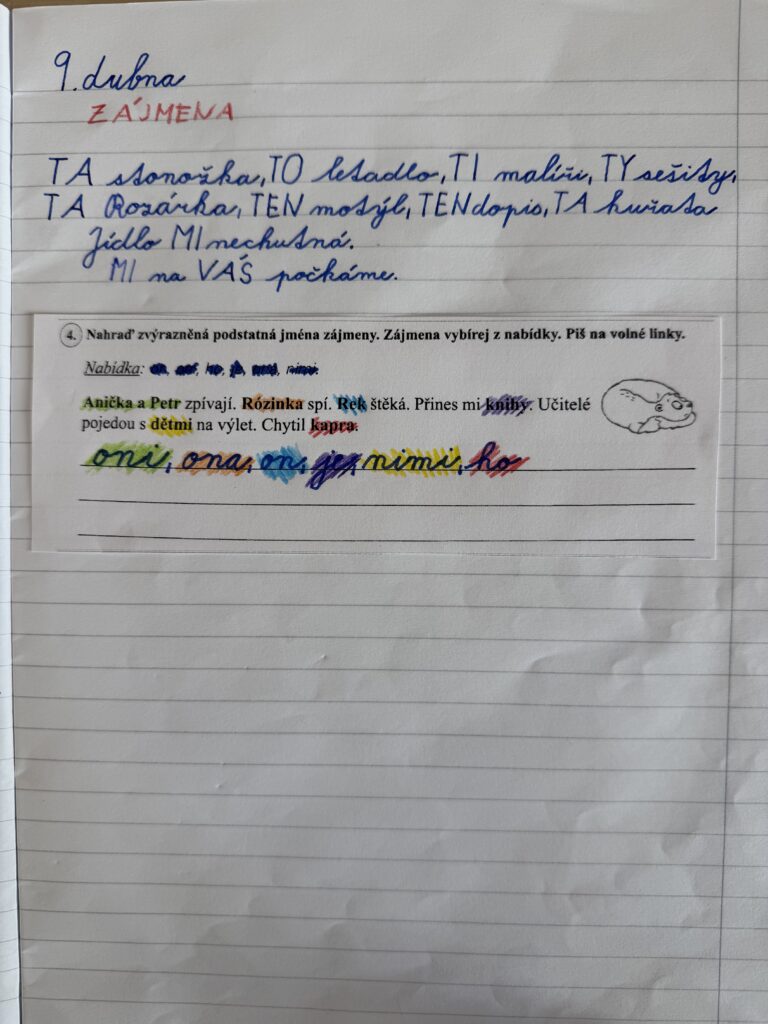 9. dubna
ZÁJMENA
TA stonožka, TO letadlo, TI malíři, TY sešity,
TA Rozárka, TEN motýl, TEN dopis, TA kuřata
Jídlo MI nechutná.
MI na VÁS počkáme.
4. Nahraď zvýrazněná podstatná jména zájmeny. Zájmena vybírej z nabídky. Piš na volné linky.
Nabídka: nimi
Anička a Petr zpívají. Rózinka spí. Rek štěká. Přines mi knihy. Učitelé
pojedou s dětmi na výlet. Chytil kapra.
oni, ona, on, je, nimi, ho